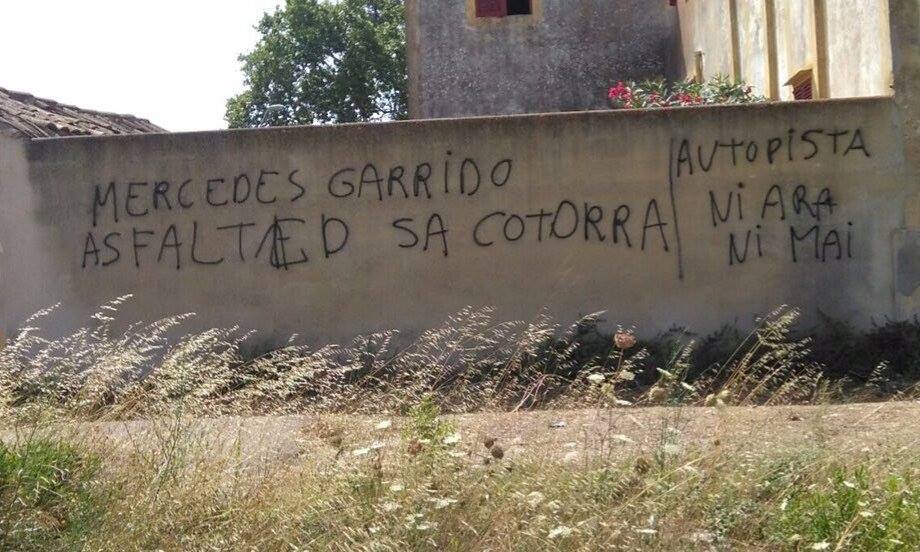 MERCEDES GARRIDO
ASFALTAED SA COTORRA
AUTOPISTA
Ni ARA
Ni MAi